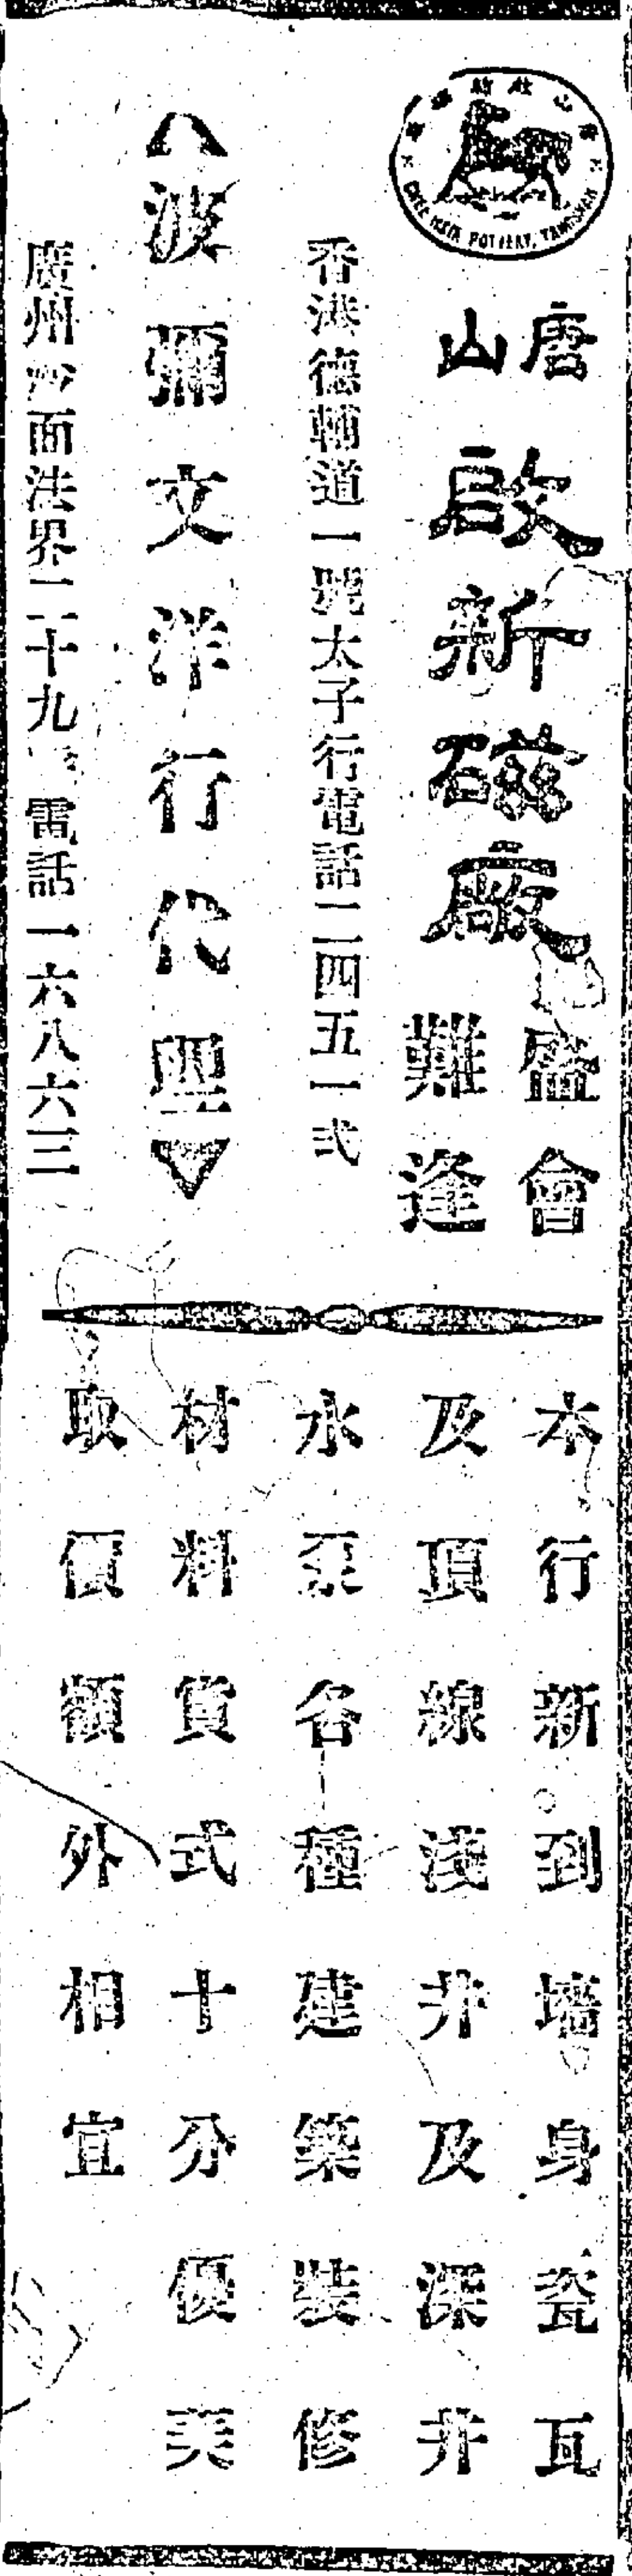 CHEE HSIN POTTERY, TANGSHAN
唐山
啟新磁廠
盛會
難逢
香港德輔道一號太子行電話二四五一式
波彌文洋行代理
廣州沙面法界二十九 電話一六八六三
本行新到墻身瓷瓦
及頂線淺井及深井
水泵各種建築裝修
材料貨式十分優美
取價額外相宜